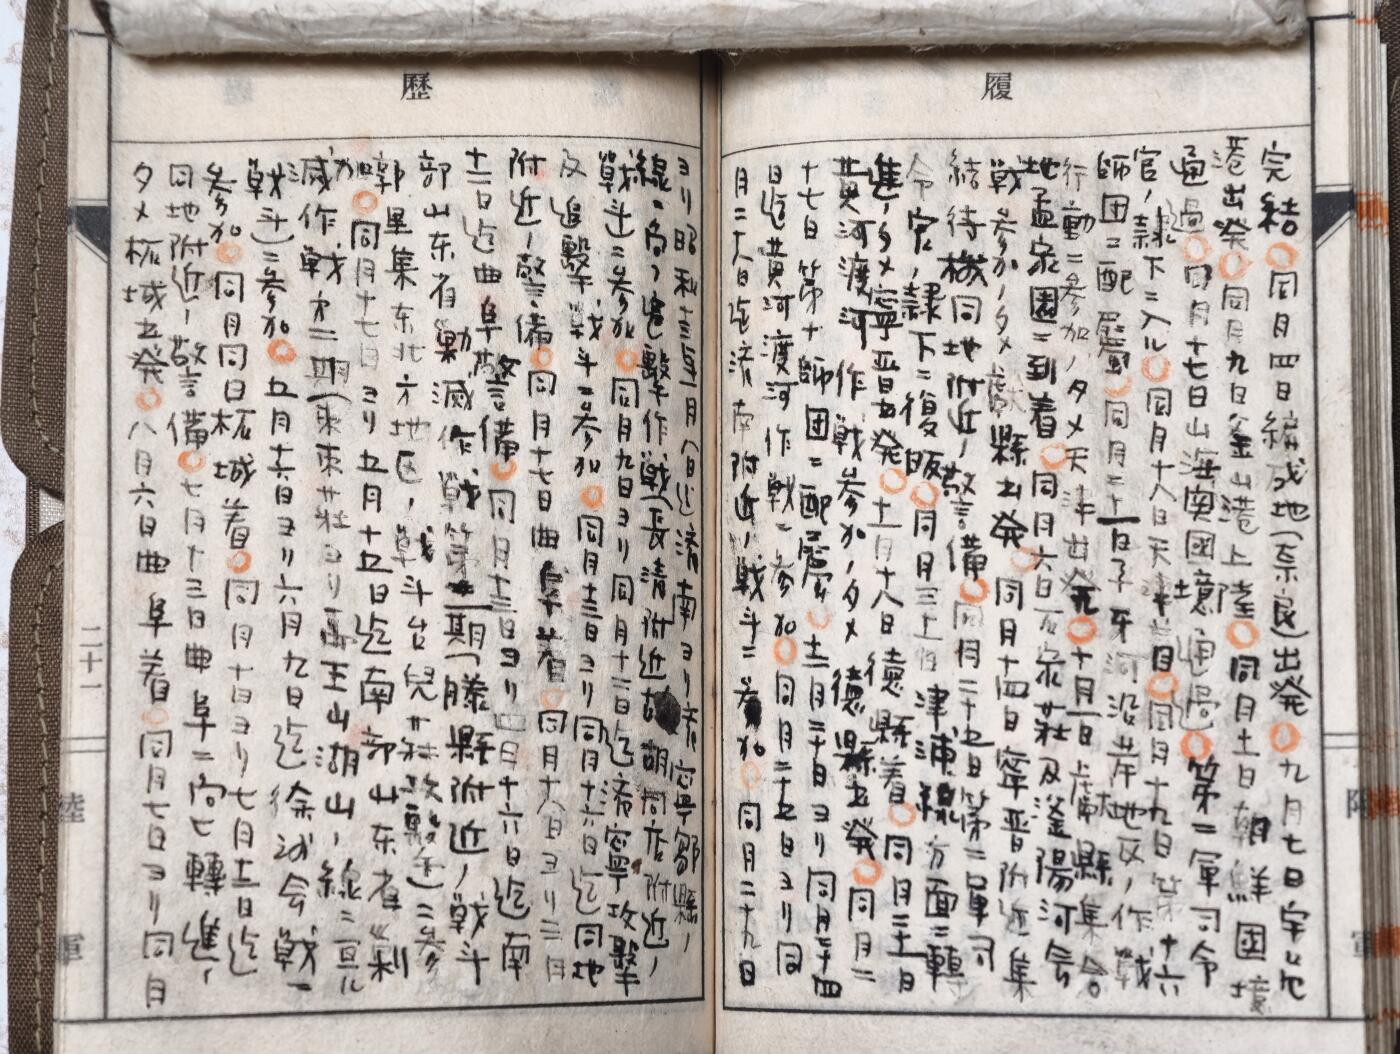 履
完結〇同月四日編成地(奈良)出発〇九月七日宇品
港出発〇同月九日釜山港上陸〇同月十一日朝鮮国境
通過〇同月十七日山海関國境通過〇第一軍司令
官ノ隷下ニ入ル〇同月十八日天津着〇同月十九日第十六
師団ニ配属〇同月二十一日子牙河沿岸地区ノ作戦
行動ニ参加ノタメ天津出発〇十月一日 縣集合
地孟家園ニ到着〇同月六日 家荘及滏陽河会
戦参加ノタメ献縣出発〇同月十四日寧晋附近集
結待機同地附近ノ警備〇同月二十五日第二軍司
令官ノ隷下ニ復皈〇同月三十一日津浦線方面ニ轉
進ノタメ寧晋出発〇十一月十八日徳縣着〇同月二十一日
黄河渡河作戦参加ノタメ徳縣出発〇同月二
十七日第十師団ニ配属〇十二月二十日ヨリ同月二十四
日迄黄河渡河作戦ニ参加〇同月二十五日ヨリ同
月二十八日迄済南附近ノ戦斗ニ参加〇同月二十九日
歴
ヨリ昭和十三年一月八日迄済南ヨリ済寧鄒縣ノ
線ニ向フ追撃作戦(長清附近 胡同店附近ノ
戦斗ニ参加〇同月九日ヨリ同月十二日迄済寧攻撃
及追撃戦斗ニ参加〇同月十三日ヨリ同月十六日迄同地
附近ノ警備〇同月十七日曲阜着〇同月十八日ヨリ二月
十二日迄曲阜警備〇同月十三日ヨリ四月十六日迄南
部山东省勦滅作戦第一期(滕縣附近ノ戦斗
郭里集东北方地区ノ戦斗台兒荘攻撃)ニ参
加〇同月十七日ヨリ五月十五日迄南部山东省勦
滅作戦第二期( 荘ヨリ 王山湖山ノ線ニ亘ル
戦斗)ニ参加〇五月十六日ヨリ六月九日迄徐州会戦ニ
参加〇同月同日柘城着〇同月十日ヨリ七月十二日迄
同地附近ノ警備〇七月十三日曲阜ニ向ヒ轉進ノ
タメ柘城出発〇八月六日曲阜着〇同月七日ヨリ同月
二十一
陸
軍